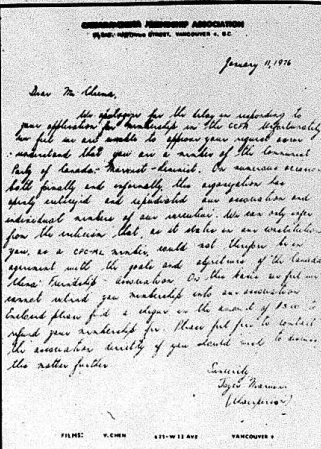 CANADA-CHINA FRIENDSHIP ASSOCIATION
STREET, VANCOUVER 4, B.C.
January 11, 1976
Dear Mr Cheema,
We apologize for the delay in responding to
your application for membership in the CCFA. Unfortunately
we feel we are unable to approve your request since
understand that you are a member of the Communist
Party of Canada - Marxist-Leninist. On numerous occasions
both formally and informally, this organization has
openly criticized and repudiated our association and
individual members of our executive. We can only infer
from the criticism that, as it states in our constitution
you, as a CPC-ML member, would not therefore be in
agreement with the goals and objectives of the Canada
China Friendship Association. On this basis we feel we
cannot extend you membership into our association
Enclosed please find a cheque in the amount of to
refund your membership fee. Please feel free to contact
the association directly if you should wish to discuss
this matter further
Sincerely
(Chairperson)
FILMS: Y. CHEN 621-W 13 AVE VANCOUVER 9